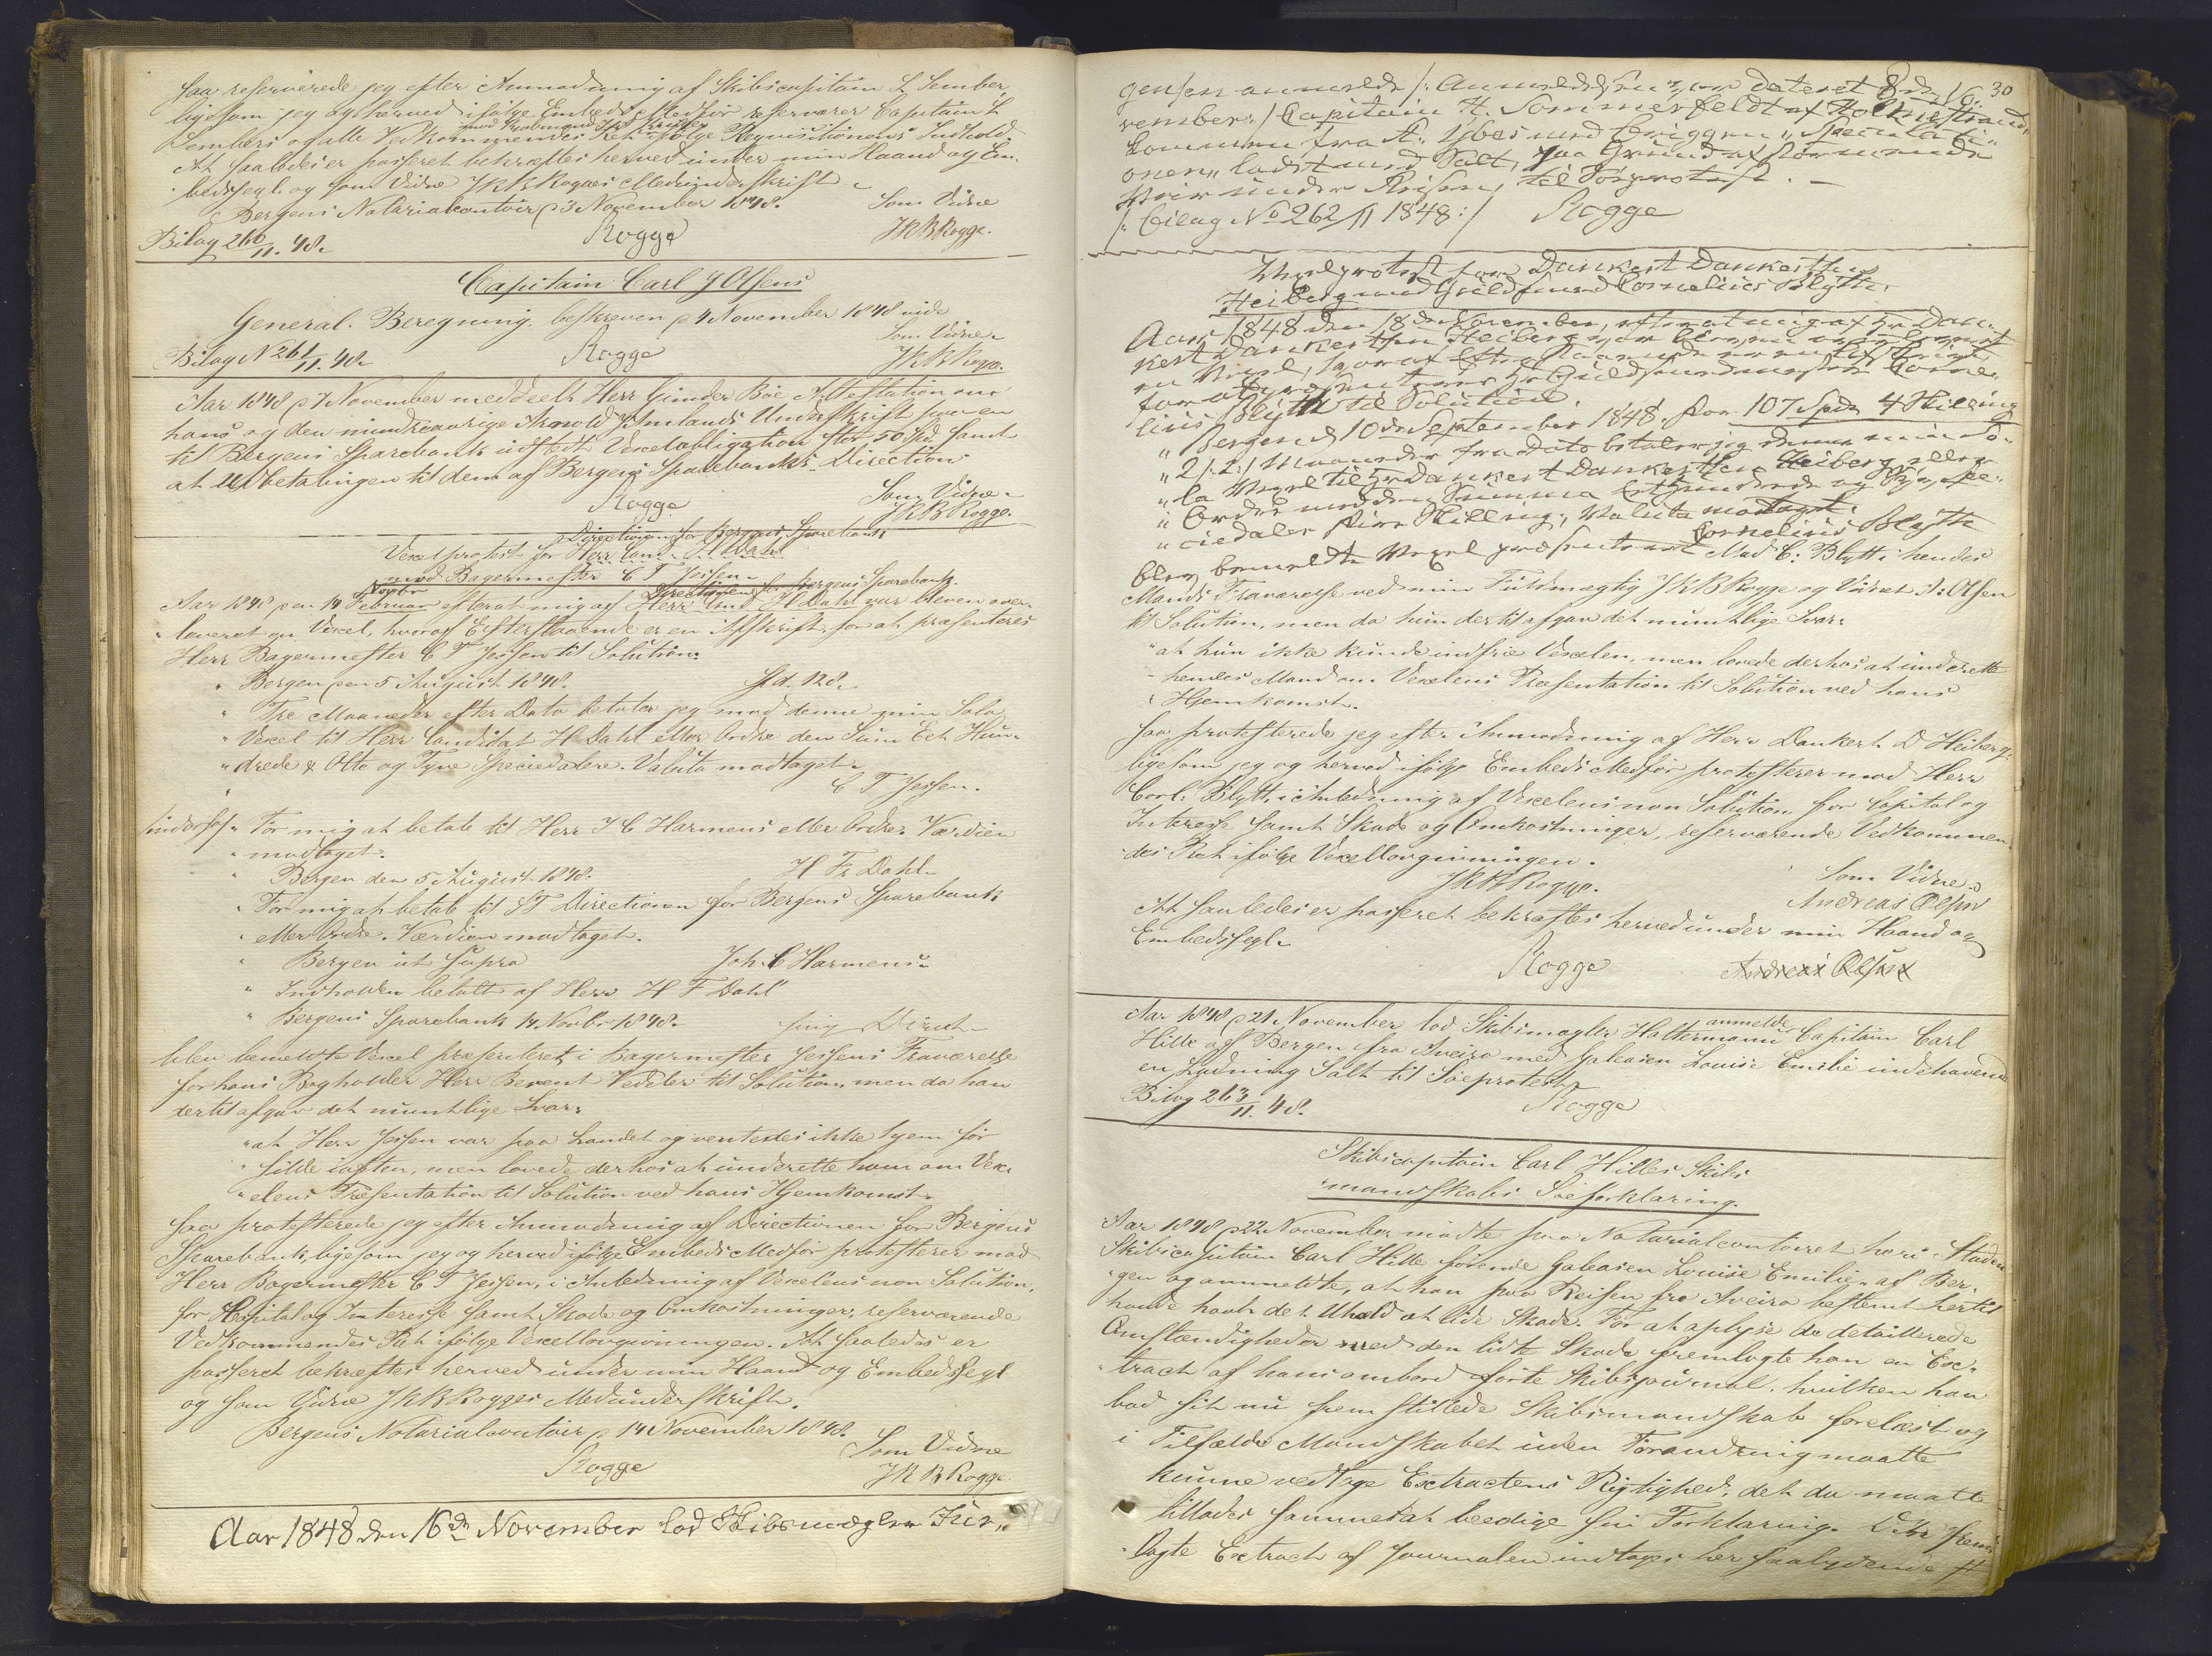 saa reserverede jeg efter Anmodning af Skibscapitain L Sember,
ligesom jeg og herved ifølge Embeds Medfør reserverer Capitain L
Sembers og alle Vedkommendes Ret ifølge Reqvisitionens Indhold.
At saaledes er passeret bekræftes herved under min Haand og Em-
bedssegl og som Vidne J K B Rogges Medunderskrift.
Bergens Notarialcontoir d 3 November 1848.
Som Vidne
Bilag 260/11. 48.
Rogge
J K B Rogge.
Capitain Carl J Olsens
General-Beregning beskreven d 4 November 1848 vide
Som Vidne
Bilag N 261/11. 48.
Rogge
J K B Rogge.
Aar 1848 d 7 November meddeelt Herr Gunder Bøe Attestation om
hans og den mindreaarige Arnold Amlands Underskrift paa en
til Bergens Sparebank udstedt Vexelobligation stor 50 Spd. samt
at Udbetalingen til dem af Bergens Sparebanks Direction
Rogge
Som Vidne
J K B Rogge.
Directionen for Bergens Sparebank
Vexelprotest for Herr Cand. H Dahl
mod Bagermester C T Jessen.
Novbr Directionen for Bergens Sparebank.
Aar 1848 den 14 Februar efterat mig af Herr Cand H Dahl var bleven over-
leveret en Vexel, hvoraf Efterstaaende er en Afskrift, for at præsenteres
Herr Bagermester C T Jessen til Solution:
" Bergen den 5 August 1848. Spd. 128.
" Tre Maaneder efter Dato betaler jeg mod denne min Sola
" Vexel til Herr Candidat H Dahl eller Ordre den Sum Eet Hun-
" drede & Otte og Tyve Speciedalere. Valuta modtaget.
" C T Jessen.
" For mig at betale til Herr J C Harmens eller Ordre. Værdien
" modtaget.
" Bergen den 5 August 1848. H Fr Dahl.
" For mig at betale til ST Directionen for Bergens Sparebank
" eller Ordre. Værdien modtaget.
" Bergen ut supra Joh. C Harmens.
" Indholden betalt af Herr H F Dahl"
" Bergens Sparebank 14 Novbr 1848.
blev bemeldte Vexel præsenteret i Bagermester Jessens Fraværelse
for hans Bogholder Herr Berent Vedeler til Solution, men da han
dertil afgav det mundtlige Svar:
" at Herr Jessen var paa Landet og ventedes ikke hjem før
" silde iaften, men lovede derhos at underrette ham om Vex-
" elens Præsentation til Solution ved hans Hjemkomst.
saa protesterede jeg efter Anmodning af Directionen for Bergens
Sparebank, ligesom jeg og herved ifølge Embeds Medfør protesterer mod
Herr Bagermester C T Jessen, i Anledning af Vexelens non Solution,
for Capital og Interesse samt Skade og Omkostninger, reserverende
Vedkommendes Ret ifølge Vexellovgivningen. At saaledes er
passeret bekræftes herved under min Haand og Embedssegl
og som Vidne J K B Rogges Medunderskrift.
Bergens Notarialcontoir d 14 November 1848.
Som Vidne
Rogge
J K B Rogge.
Aar 1848 den 16de November lod Skibsmægler Jür-
30
gensen anmelde Capitain H. Sommerfeldt af Holmestrand,
kommen fra St. Ybes med Briggen "Speculati-
onen" ladet med Salt, paa Grund af
under Reisen, til Søeprotest.
/: Bilag No 262/11 1848:/ Rogge
Vexelprotest for Dankert Dankertsen
Heiberg mod Guldsmed Cornelius Blytt.
Aar 1848 den 18de November, efterat mig af Hr Dan-
kert Dankertsen Heiberg var bleven
en Vexel, hvoraf Efterstaaende er en Afskrift,
for at præsenteres Hr Guldsmedmester Corne-
lius Blytt til Solution.
" Bergen d 10de September 1848. for 107 Spd 4 Skilling
" 2/:2:/ Maaneder fra dato betaler jeg denne min So-
" la Vexel til Hr Dankert Dankertsen Heiberg eller
" Ordre med den Summa Et Hundrede og Syv Spe-
" ciedaler fire Skilling, Valuta modtaget.
Cornelius Blytt
blev bemeldte Vexel præsenteret Mad C. Blytt i hendes
Mands Fraværelse ved min Fuldmægtig J K B Rogge og Vidnet A: Olsen
til Solution, men da hun dertil afgav det mundtlige Svar:
" at hun ikke kunde indfrie Vexelen, men lovede derhos at underrette
" hendes Mand om Vexelens Præsentation til Solution ved hans
" Hjemkomst.
saa protesterede jeg efter Anmodning af Herr Dankert D Heiberg,
ligesom jeg og herved ifølge Embeds Medfør protesterer mod Herr
Corl. Blytt, i Anledning af Vexelens non Solution for Capital og
Interesse samt Skade og Omkostninger, reserverende Vedkommen-
des Ret ifølge Vexellovgivningen.
Som Vidne
J K B Rogge.
Andreas Olsen
At saaledes er passeret bekræftes herved under min Haand og
Embedssegl.
Rogge
Andreas Olsen
Aar 1848 d 21 November lod Skibsmægler Haltermann anmelde Capitain Carl
Hille af Bergen fra Aveiro med Galeasen Louise Emilie indehavende
en Ladning Salt til Søeprotest.
Bilag 263/11. 48.
Rogge
Skibscapitain Carl Hilles Skibs
mandskabs Søeforklaring.
Aar 1848 d 22 November mødte paa Notarialcontoiret her i Staden
Skibscapitain Carl Hille førende Galeasen Louise Emilie af Ber-
gen og anmeldte, at han paa Reisen fra Aveiro bestemt hertil
havde havt det Uheld at lide Skade. For at oplyse de detaillerede
Omstændigheder ved den lidte Skade fremlagte han en Ex-
tract af hans ombord førte Skibsjournal, hvilken han
bad sit nu fremstillede Skibsmandskab forelæst og
i Tilfælde Mandskabet uden Forandring maatte
kunne vedtage Extractens Rigtighed, det da maatte
tillades sammesat beedige sin Forklaring. Den frem-
lagte Extract af Journalen indtages her saalydende